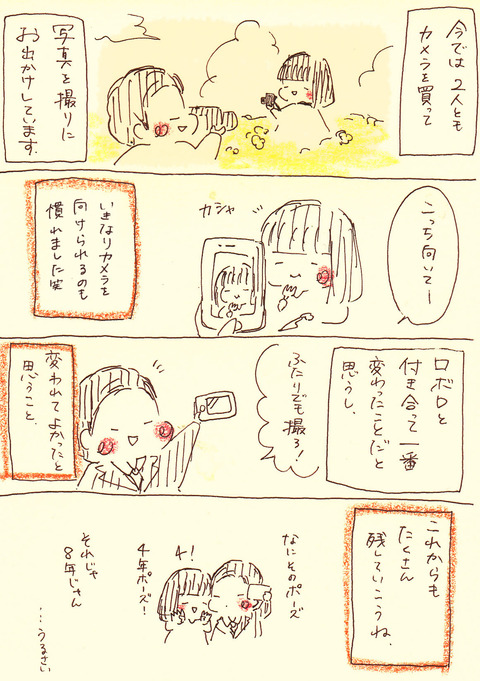 今では2人とも
カメラを買って
写真を撮りに
お出かけしています。
こっち向いてー
カシャ
いきなりカメラを
向けられるのも
慣れました笑
ロボロと
付き合って一番
変わったことだと
思うし、
ふたりでも撮ろ!
変われてよかったと
思うこと。
これからも
たくさん
残していこうね。
なにそのポーズ
4!
4年ポーズ!
それじゃ
8年じゃん
…うるさい